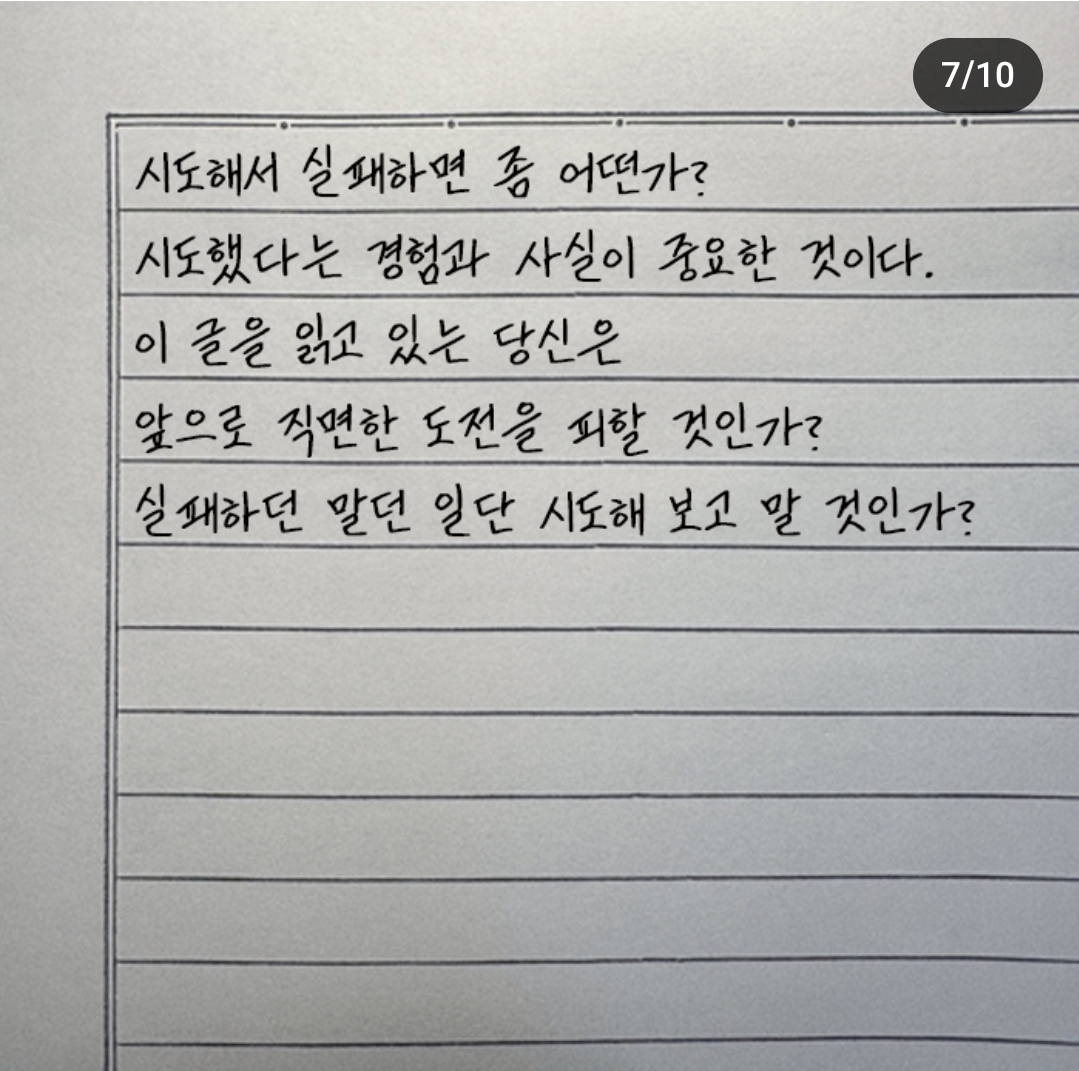 7/10
시도해서 실패하면 좀 어떤가?
시도했다는 경험과 사실이 중요한 것이다.
이 글을 읽고 있는 당신은
앞으로 직면한 도전을 피할 것인가?
실패하던 말던 일단 시도해 보고 말 것인가?